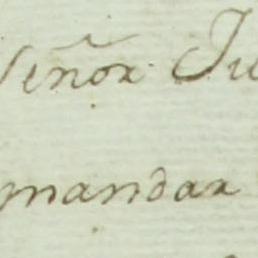 Señor Ju
mandar